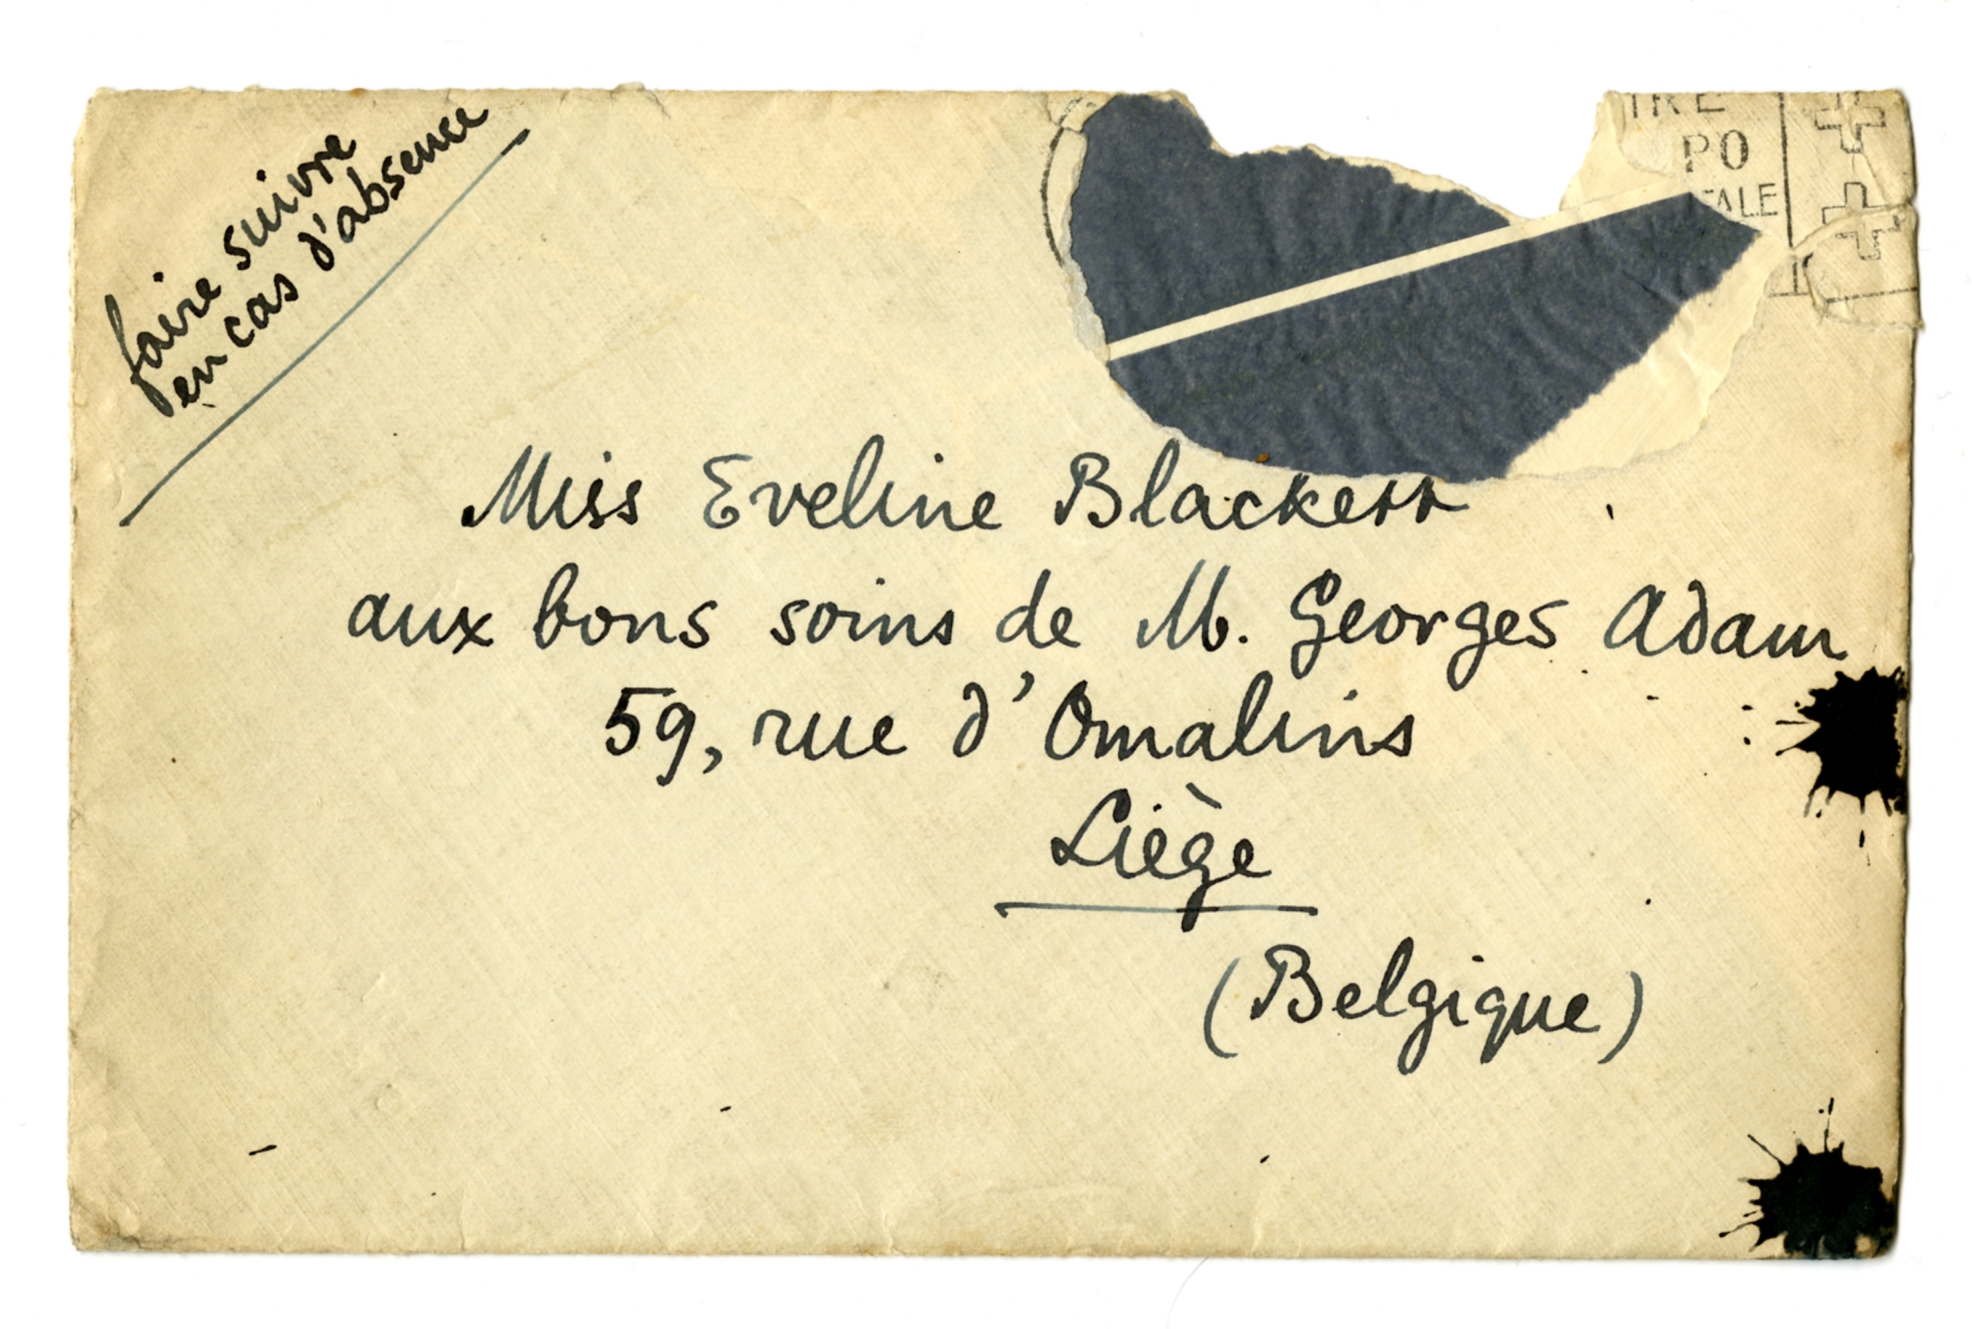 faire suivre
en cas d'absence
PO
Miss Eveline Blackett
aux bons soins de M. Georges Adam
59, rue d'Omalins
Liège
(Belgique)